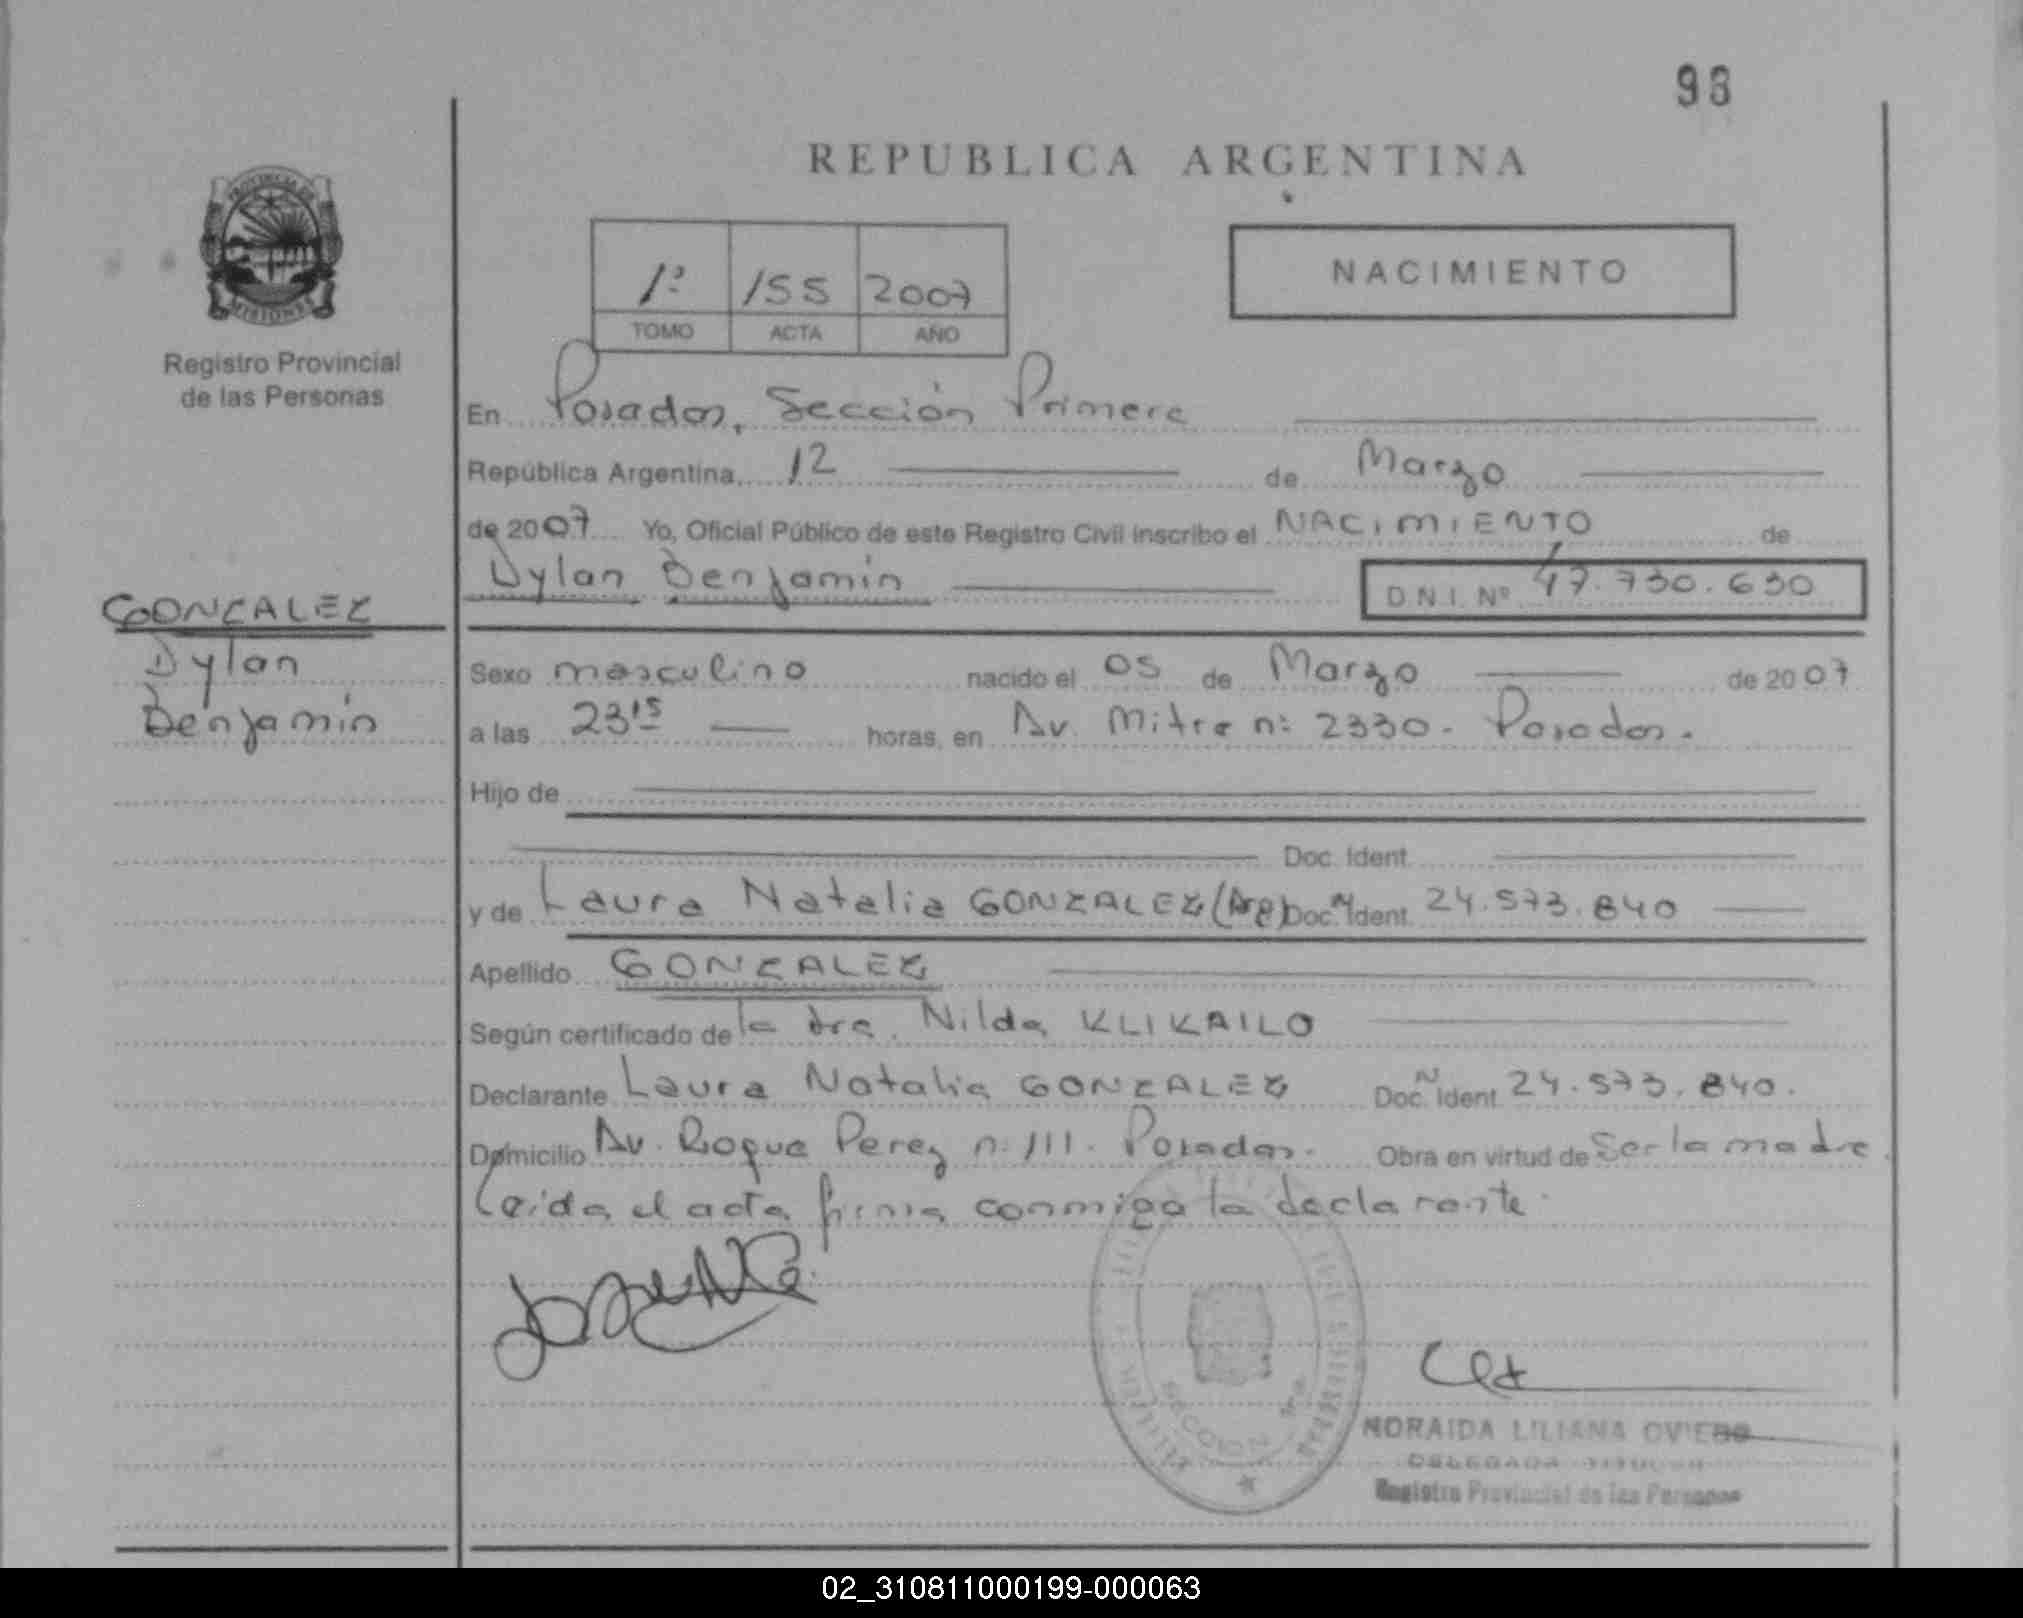 93
REPUBLICA ARGENTINA
PROVINCIA DE
MISIONES
Registro Provincial
de las Personas
1º 155 2007
TOMO ACTA AÑO
NACIMIENTO
En Posadas, Sección Primera
República Argentina, 12 de Marzo
de 2007 Yo, Oficial Público de este Registro Civil inscribo el NACIMIENTO de
Dylan Benjamín D.N.I. Nº 47.730.630
GONZALEZ
Dylan
Benjamín
Sexo masculino nacido el 05 de Marzo de 2007
a las 23 15 horas, en Av. Mitre nº 2330. Posadas.
Hijo de
Doc. Ident.
y de Laura Natalia GONZALEZ (Arg) Doc. N Ident. 24.573.840
Apellido GONZALEZ
Según certificado de la dra. Nilda KLIKAILO
Declarante Laura Natalia GONZALEZ Doc. N Ident. 24.573.840.
Domicilio Av. Roque Perez nº 111. Posadas. Obra en virtud de Ser la madre.
Leida el acta firma conmigo la declarante.
SECCION 1ra
NORAIDA LILIANA OVIEDO
DELEGADA TITULAR
Registro Provincial de las Personas
02_310811000199-000063